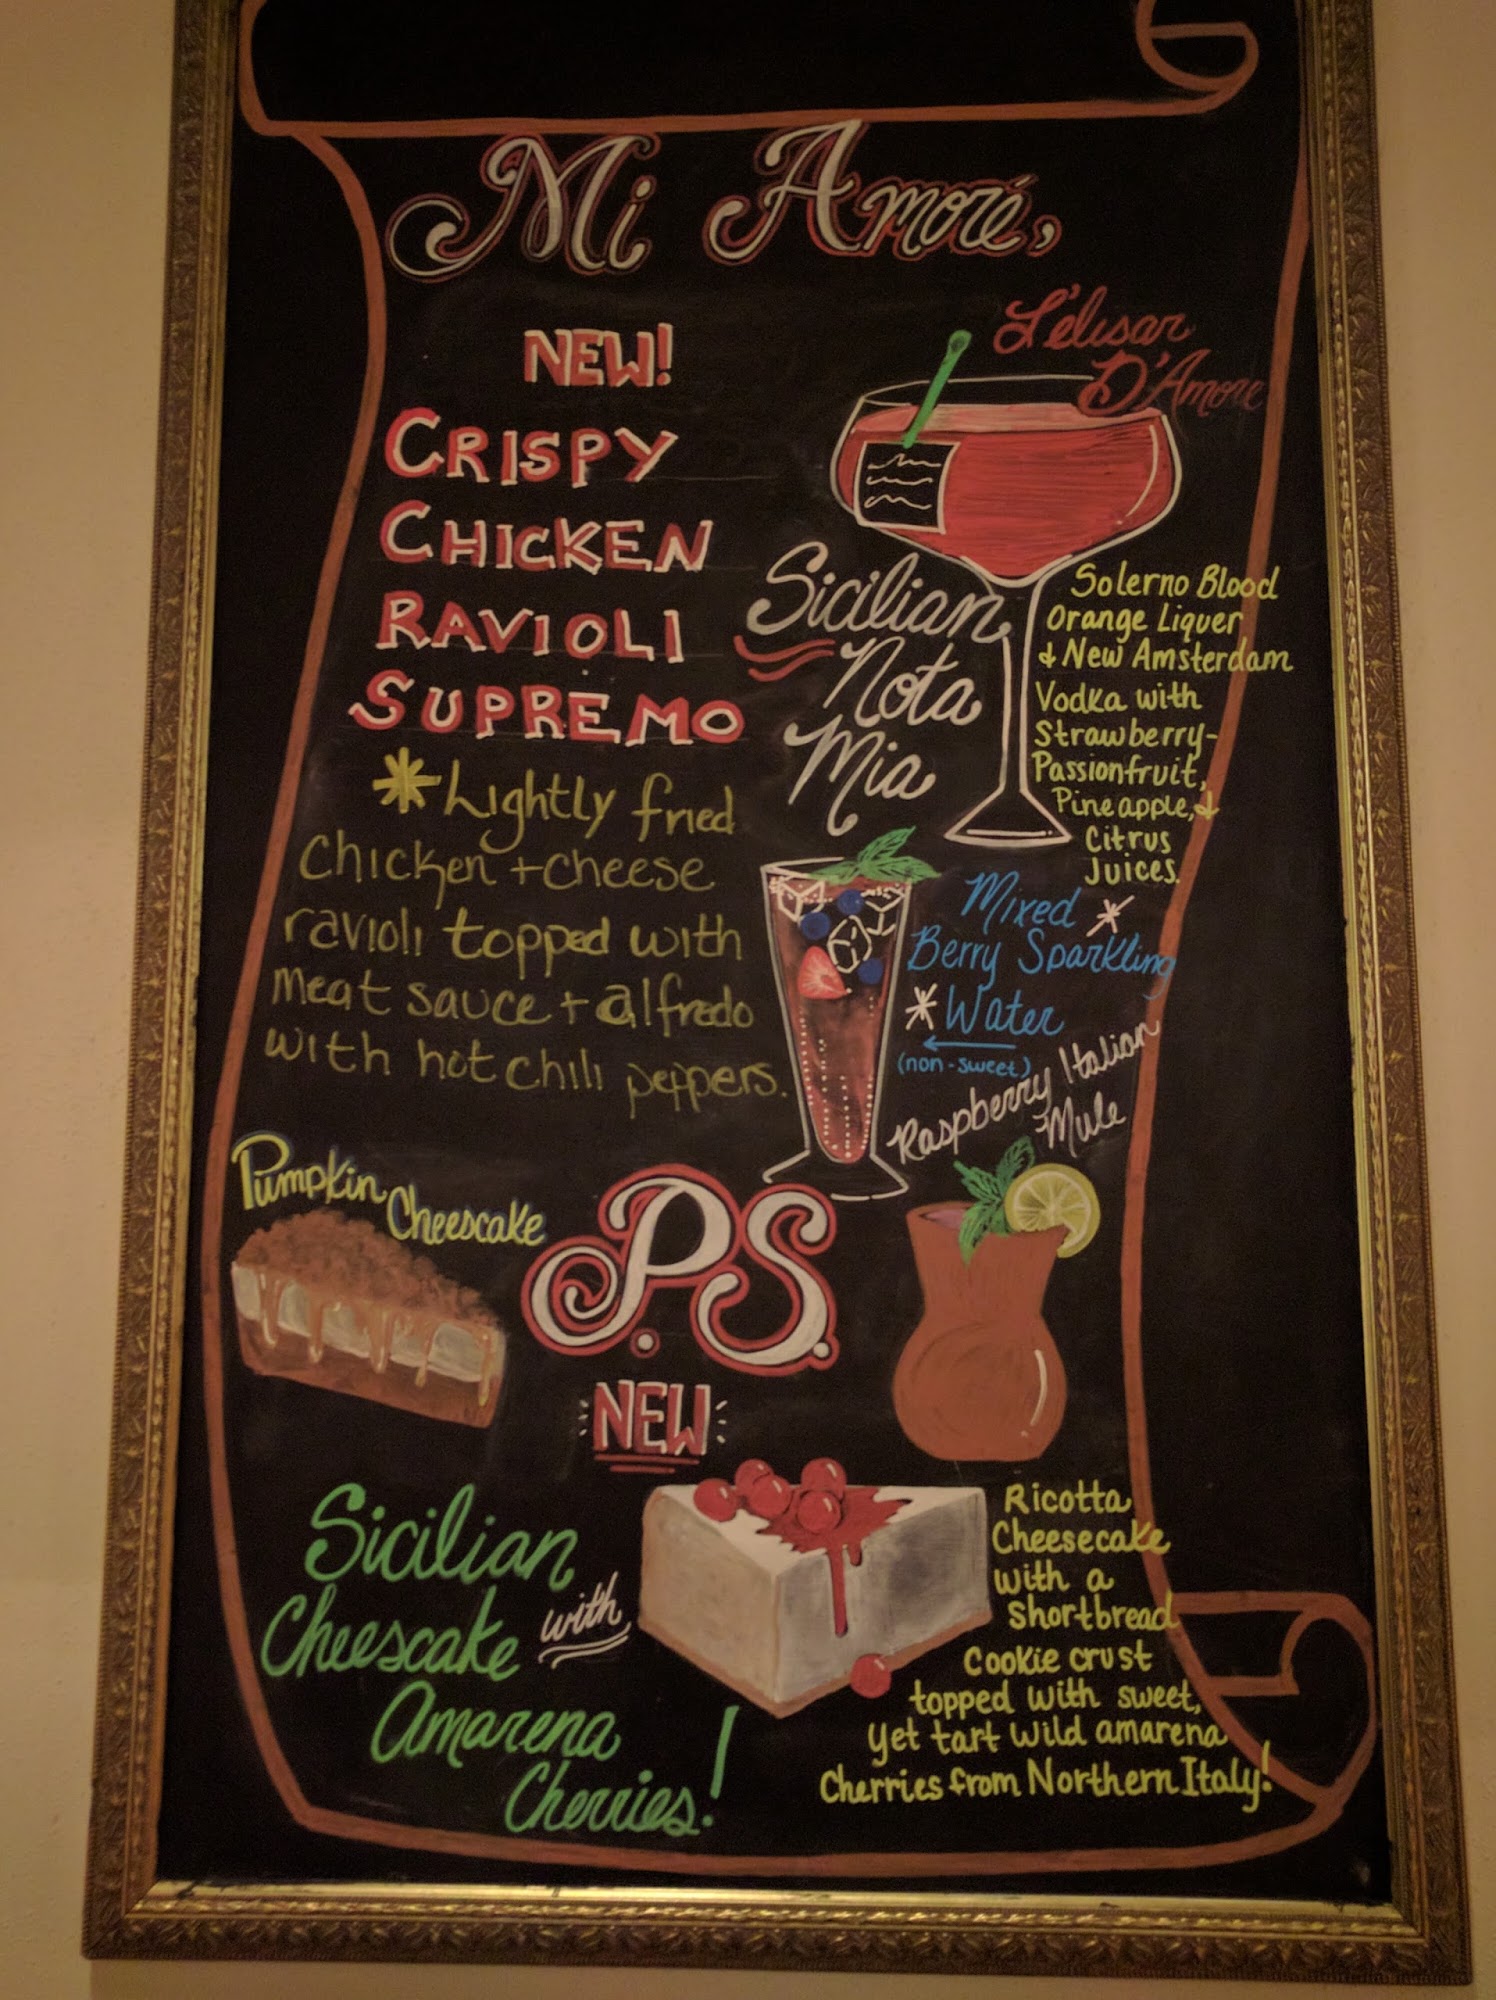 Mi Amoré,
NEW!
CRISPY
CHICKEN
RAVIOLI
SUPREMO
*Lightly fried
chicken + cheese
ravioli topped with
meat sauce + alfredo
with hot chili peppers.
L'élisar
D'Amore
Sicilian
Nota
Mia
Solerno Blood
Orange Liquer
& New Amsterdam
Vodka with
Strawberry-
Passionfruit,
Pineapple, &
Citrus
Juices.
Mixed *
Berry Sparkling
* Water
(non-sweet)
Raspberry Italian
Mule
Pumpkin
Cheescake
P.S.
NEW
Sicilian
Cheescake with
Amarena
Cherries!
Ricotta
Cheesecake
with a
Shortbread
Cookie crust
topped with sweet,
yet tart wild amarena
Cherries from Northern Italy!